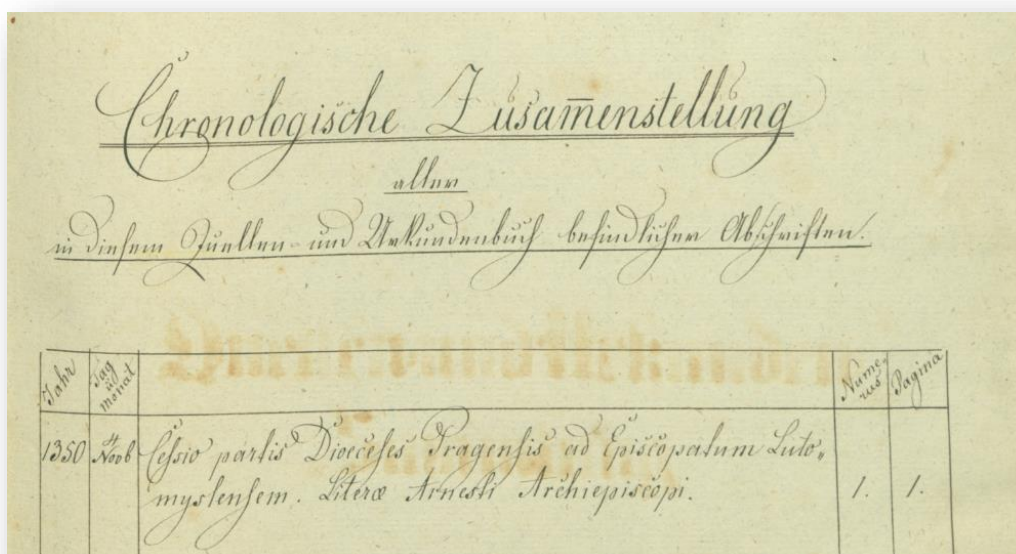 Chronologische Zusam̅enstellung
aller
in diesem Quellen- und Urkundenbuch befindlicher Abschriften.
Jahr Tag u̅ monat Nume- rus Pagina
1350 4 Novb Cessio partis Dioeceses Pragensis ad Episcopatum Luto„
myslensem. Literæ Arnesti Archiepiscopi. 1. 1.